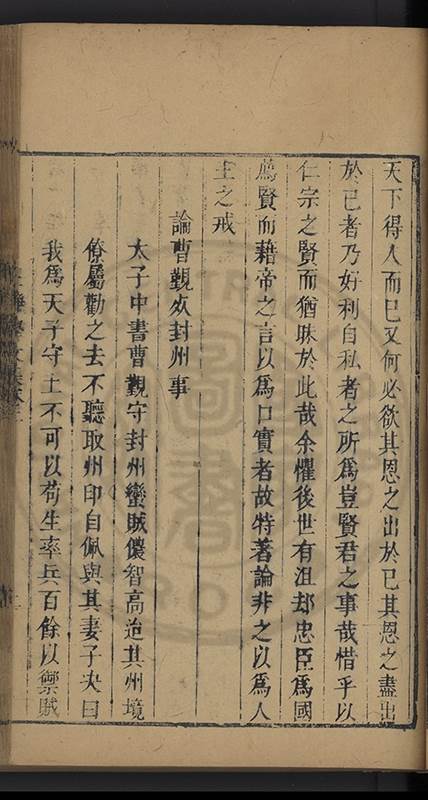 天下得人而已又何必欲其恩之出於已其恩之盡出
於已者乃好利自私者之所為豈賢君之事哉惜乎以
仁宗之賢而猶昧於此哉余懼後世有沮却忠臣為國
薦賢而藉帝之言以為口實者故特著論非之以為人
主之戒
論曹覲效封州事
太子中書曹覲守封州蠻賊儂智高迨其州境
僚屬勸之去不聽取州印自佩與其妻子夬曰
我為天子守土不可以苟生率兵百餘以禦賊